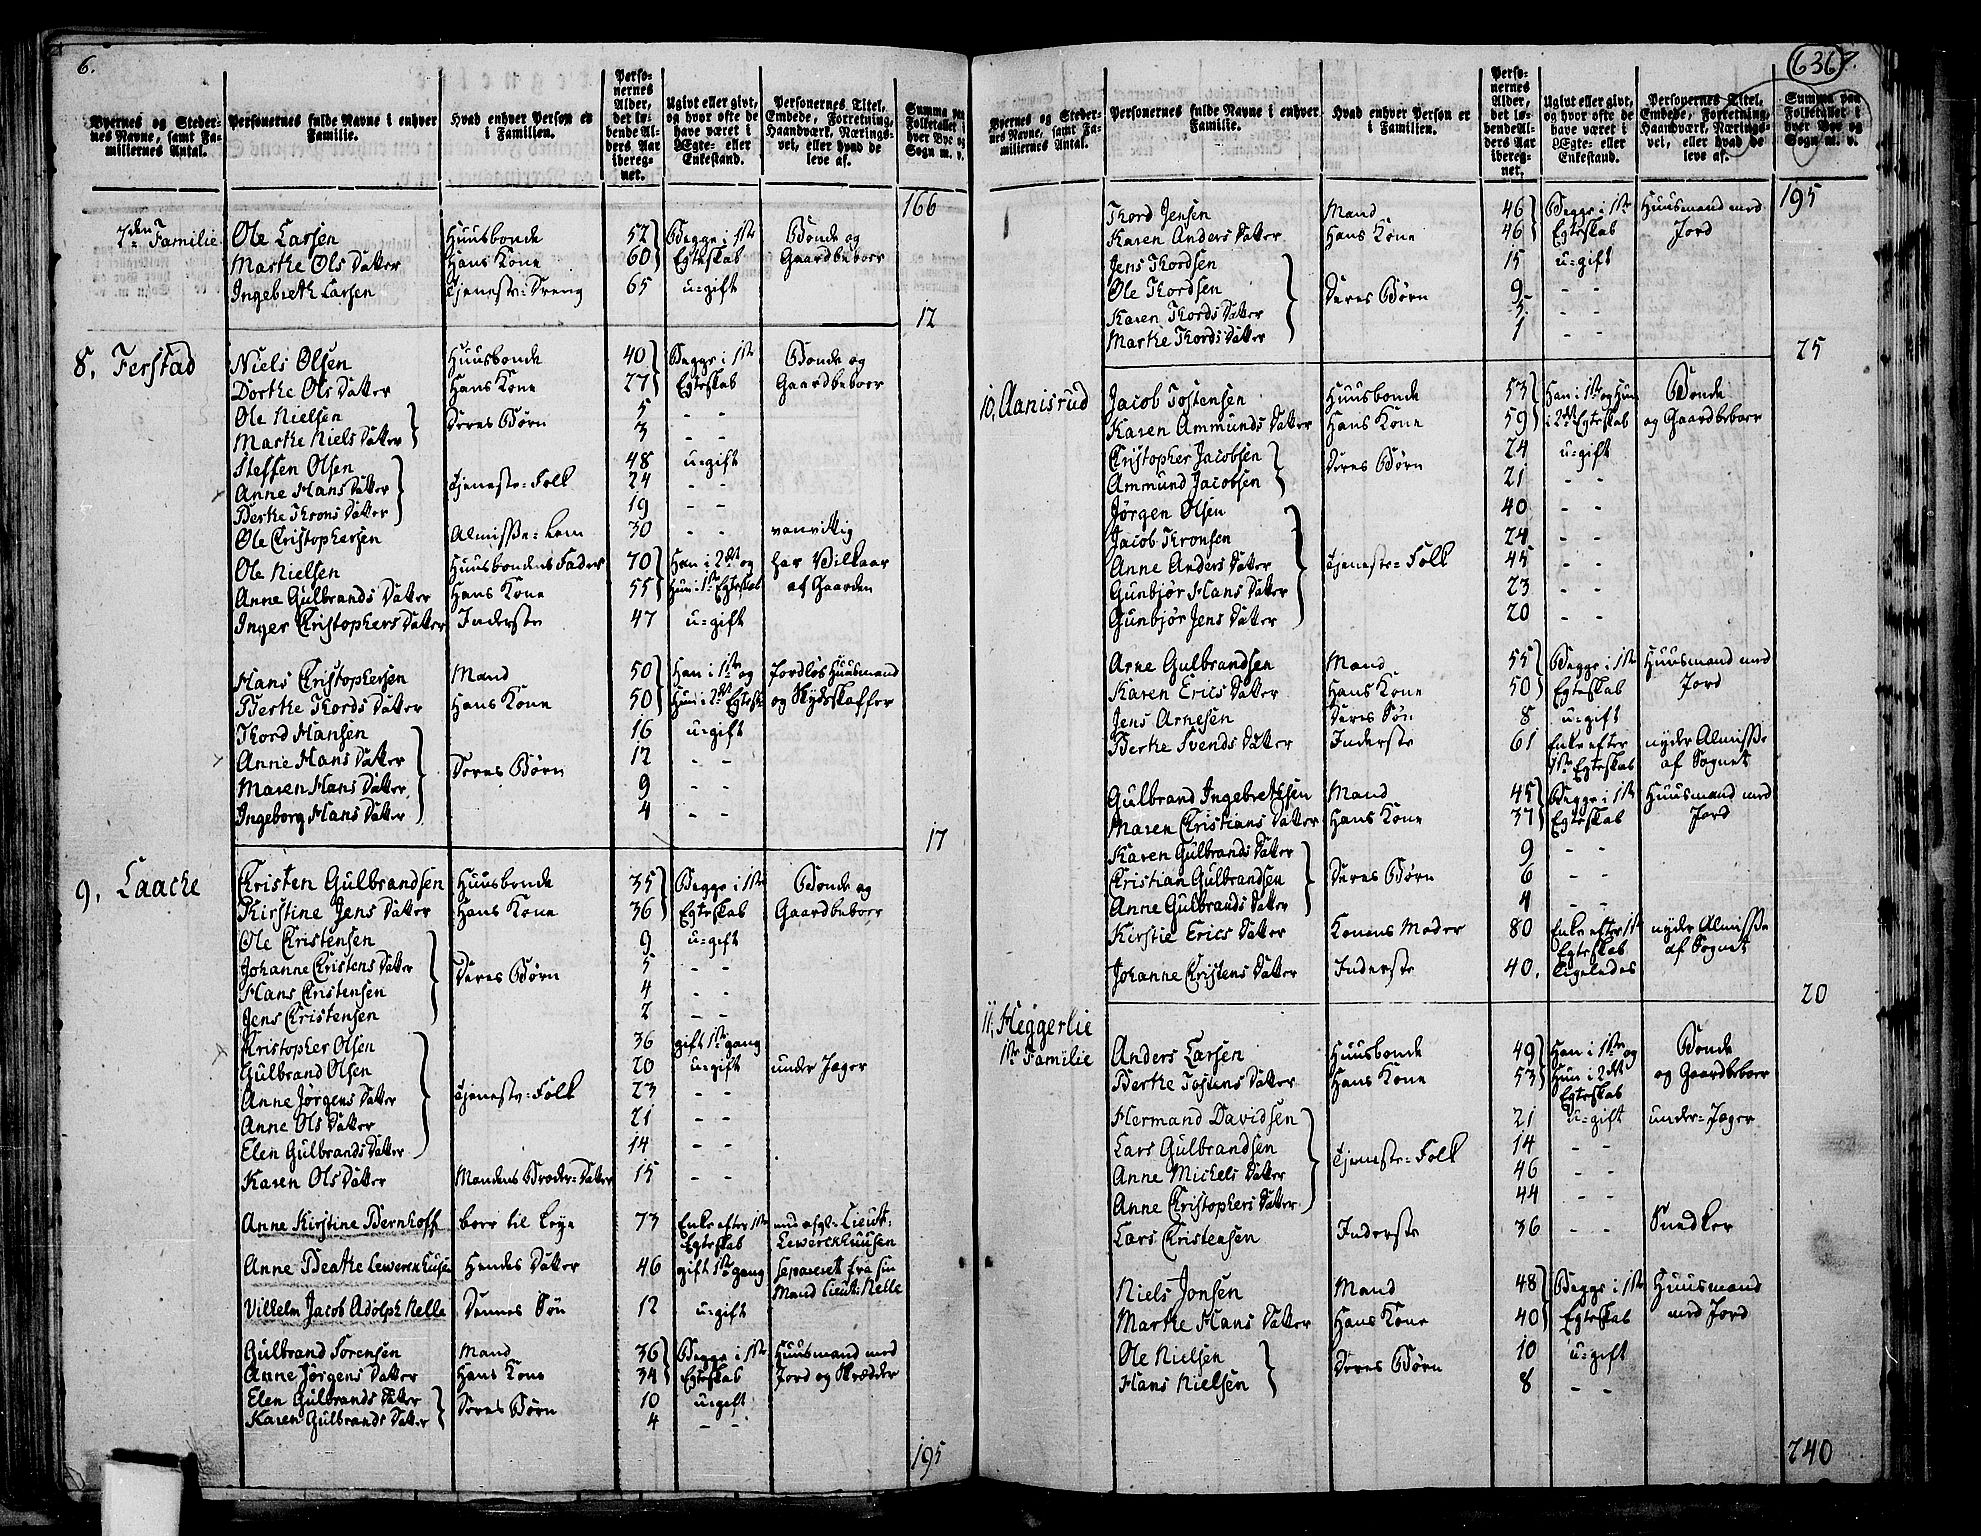 6.
Byernes og Steder-
nes Navne, samt Fa-
miliernes Antal.
Personernes fulde Navne i enhver
Familie.
Hvad enhver Person er
i Familien.
Perso-
nernes
Alder,
det lø-
bende Al-
ders Aar
ibereg-
net.
Ugivt eller givt,
og hvor ofte de
have været i
Ægte- eller
Enkestand.
Personernes Titel,
Embede, Forretning,
Haandværk, Nærings-
vei, eller hvad de
leve af.
Summa paa
Folketallet i
hver Bye og
Sogn m. v.
166
7den Familie Ole Larsen Huusbonde 52 Begge i 1ste Bonde og
Marthe Ols Datter Hans Kone 60 Egteskab Gaardbeboer
Ingebreth Larsen Tjeneste-Dreng 65 u-gift
12
8, Ferstad Niels Olsen Huusbonde 40 Begge i 1ste Bonde og
Dorthe Ols Datter Hans Kone 27 Egteskab Gaardbeboer
Ole Nielsen Deres Børn 5 - -
Marthe Niels Datter 3 - -
Steffen Olsen Tjeneste-Folk 48 u-gift
Anne Hans Datter 24 - -
Berthe Throns Datter 19 - -
Ole Christophersen Almisse-Lem 30 - - vanvittig
Ole Nielsen Huusbondens Fader 70 Han i 2det og har Vilkaar
Anne Gulbrands Datter Hans Kone 55 Hun i 1ste Egteskab af Gaarden
Inger Christophers Datter Inderste 47 u-gift
Hans Christophersen Mand 50 Han i 1ste og Jordløs Huusmand
Berthe Thords Datter Hans Kone 50 Hun i 2det Egtesk. og Skydsskaffer
Thord Hansen 16 u-gift
Anne Hans Datter Deres Børn 12 - -
Maren Hans Datter 9 - -
Ingeborg Hans Datter 4 - -
17
9, Laacke Christen Gulbrandsen Huusbonde 35 Begge i 1ste Bonde og
Kirstine Jens Datter Hans Kone 36 Egteskab Gaardbeboer
Ole Christensen 9 u-gift
Johanne Christens Datter Deres Børn 5 - -
Hans Christensen 4 - -
Jens Christensen 2 - -
Christopher Olsen 36 gift 1ste gang
Gulbrand Olsen 20 u-gift under Jæger
Anne Jørgens Datter Tjeneste-Folk 23 - -
Anne Ols Datter 21 - -
Elen Gulbrands Datter 14 - -
Karen Ols Datter Mandens Broder-Datter 15 - -
Anne Kirstine Bernhoff boer til Leye 73 Enke efter 1ste
Egteskab med afgl. Lieut.
Lewerckhuusen
Anne Beathe Lewerckhusen Hendes Datter 46 gift 1ste gang separeret fra sin
Mand Lieut: Nelle
Vilhelm Jacob Adolph Nelle Dennes Søn 12 u-gift
Gulbrand Sørensen Mand 36 Begge i 1ste Huusmand med
Anne Jørgens Datter Hans Kone 34 Egteskab Jord og Skrædder
Elen Gulbrands Datter Deres Børn 10 u-gift
Karen Gulbrands Datter 4 - -
195
636
7.
Byernes og Steder-
nes Navne, samt Fa-
miliernes Antal.
Personernes fulde Navne i enhver
Familie.
Hvad enhver Person er
i Familien.
Perso-
nernes
Alder,
det lø-
bende Al-
ders Aar
ibereg-
net.
Ugivt eller givt,
og hvor ofte de
have været i
Ægte- eller
Enkestand.
Personernes Titel,
Embede, Forretning,
Haandværk, Nærings-
vei, eller hvad de
leve af.
Summa paa
Folketallet i
hver Bye og
Sogn m. v.
195
Thord Jensen Mand 46 Begge i 1ste Huusmand med
Karen Anders Datter Hans Kone 46 Egteskab Jord
Jens Thordsen 15 u-gift
Ole Thordsen Deres Børn 9 - -
Karen Thords Datter 5 - -
Marthe Thords Datter 1 - -
25
10, Aanisrud Jacob Tostensen Huusbonde 53 Han i 1ste og Hun Bonde
Karen Ammunds Datter Hans Kone 59 i 2det Egteskab og Gaardbeboer
Christopher Jacobsen Deres Børn 24 u-gift
Ammund Jacobsen 21 - -
Jørgen Olsen 40 - -
Jacob Thronsen 24 - -
Anne Anders Datter Tjeneste-Folk 45 - -
Gunbjør Hans Datter 23 - -
Gunbjør Jens Datter 20 - -
Arne Gulbrandsen Mand 55 Begge i 1ste Huusmand med
Karen Erics Datter Hans Kone 50 Egteskab Jord
Jens Arnesen Deres Søn 8 u-gift
Berthe Svends Datter Inderste 61 Enke efter nyder Almisse
1ste Egteskab af Sognet
Gulbrand Ingebrethsen Mand 45 Begge i 1ste Huusmand med
Maren Christians Datter Hans Kone 37 Egteskab Jord
Karen Gulbrands Datter 9 - -
Christian Gulbrandsen Deres Børn 6 - -
Anne Gulbrands Datter 4 - -
Kirstie Erics Datter Konens Moder 80 Enke efter 1ste nyder Almisse
Egteskab af Sognet
Johanne Christens Datter Inderste 40. ligeledes
20
11, Heggerlie
1ste Familie Anders Larsen Huusbonde 49 Han i 1ste og Bonde
Berthe Tostens Datter Hans Kone 53 Hun i 2det og Gaardbeboer
Egteskab
Hermand Davidsen 21 u-gift under-Jæger
Lars Gulbrandsen Tjeneste-Folk 14 - -
Anne Michels Datter 46 - -
Anne Christophers Datter 44 - -
Lars Christensen Inderste 36 - - Snedker
Niels Jonsen Mand 48 Begge i 1ste Huusmand
Marthe Hans Datter Hans Kone 40 Egteskab med Jord
Ole Nielsen Deres Børn 10 u-gift
Hans Nielsen 8 - -
240